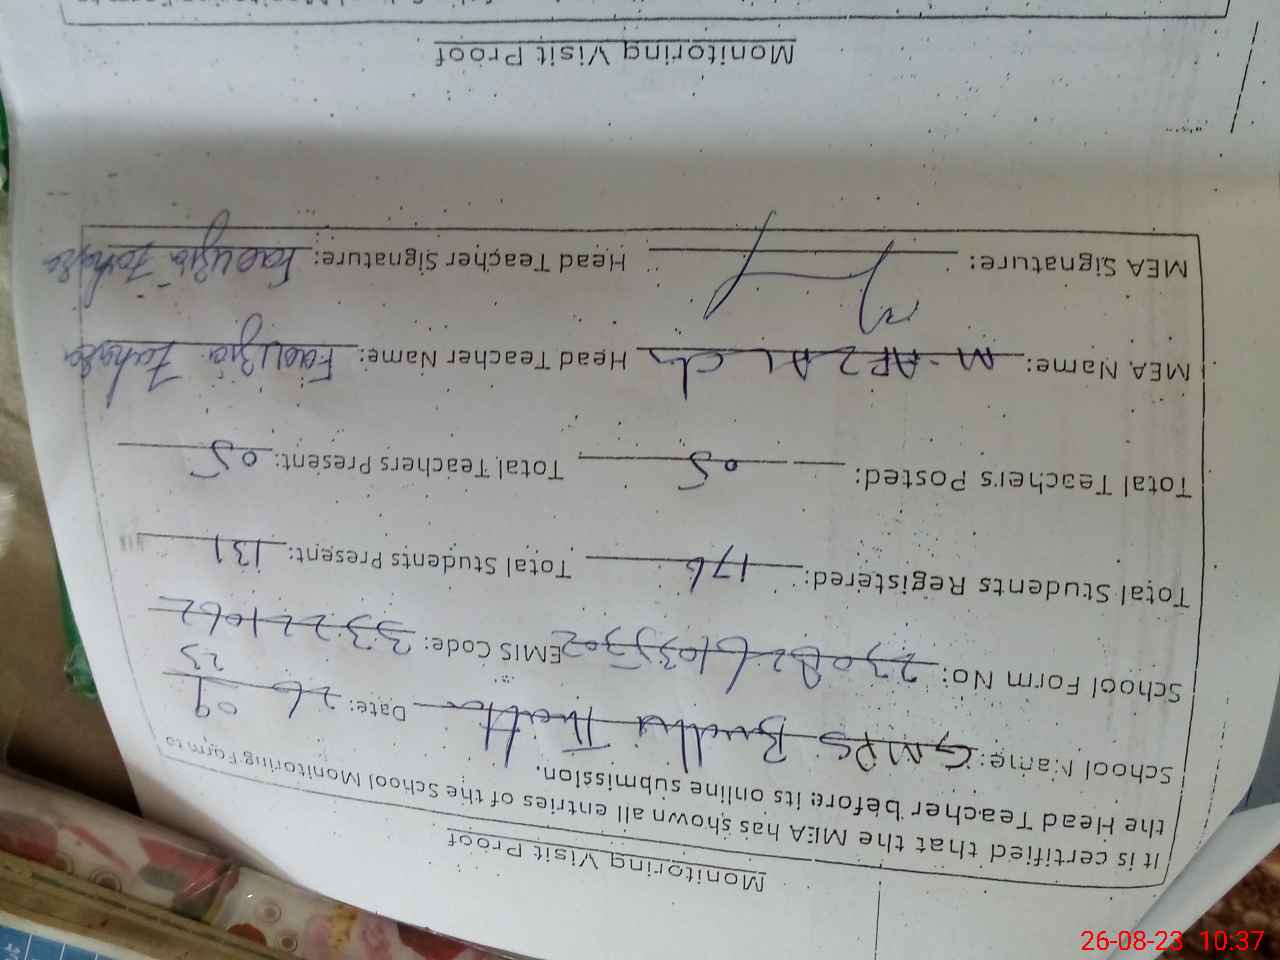 Monitoring Visit Proof
It is certified that the MEA has shown all entries of the School Monitoring Form to
the Head Teacher before its online submission.
School Name: GMPS Budha Thatta Date: 26 09 23
School Form No: EMIS Code: 33221062
Total Students Registered: 176 Total Students Present: 131
Total Teachers Posted: 05 Total Teachers Present: 05
MEA Name: M. AFZAL Ch Head Teacher Name: Faouzia
MEA Signature: Head Teacher Signature: Faouzia
Monitoring Visit Proof
26-08-23 10:37